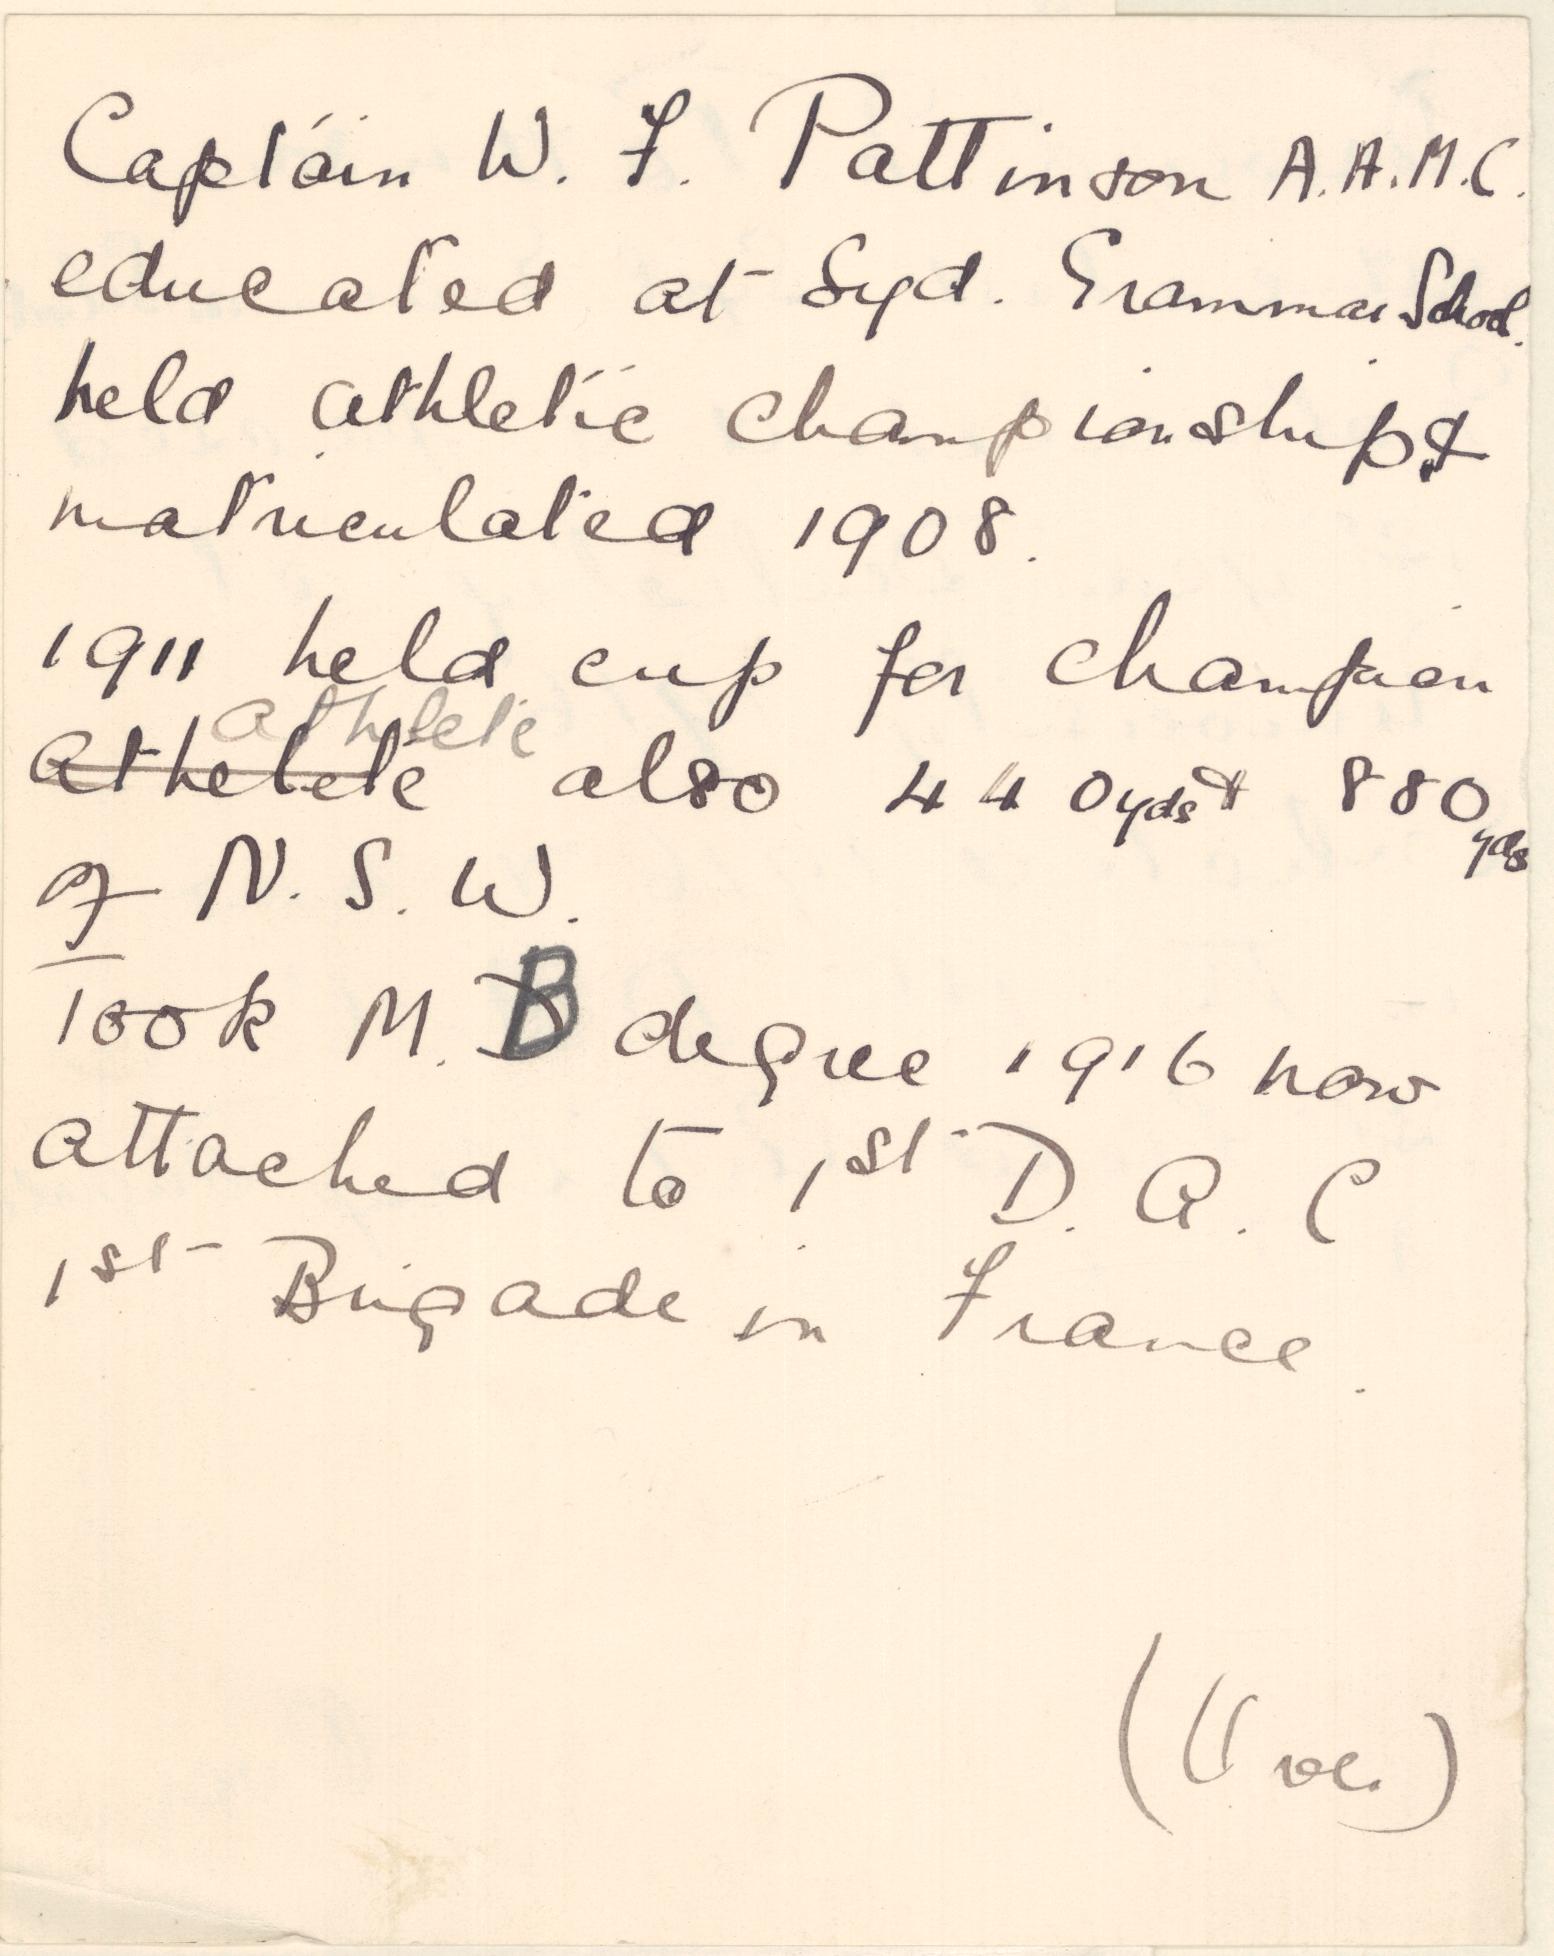 Captain W. F. Pattinson A.A.M.C.
educated at Syd. Grammar School.
held athletic championship &
matriculated 1908.
1911 held cup for champion
athlete
athelete also 440yds & 880yds
of N. S. W.
Took M. B degree 1916 now
attached to 1st D. A. C
1st Brigade in France.